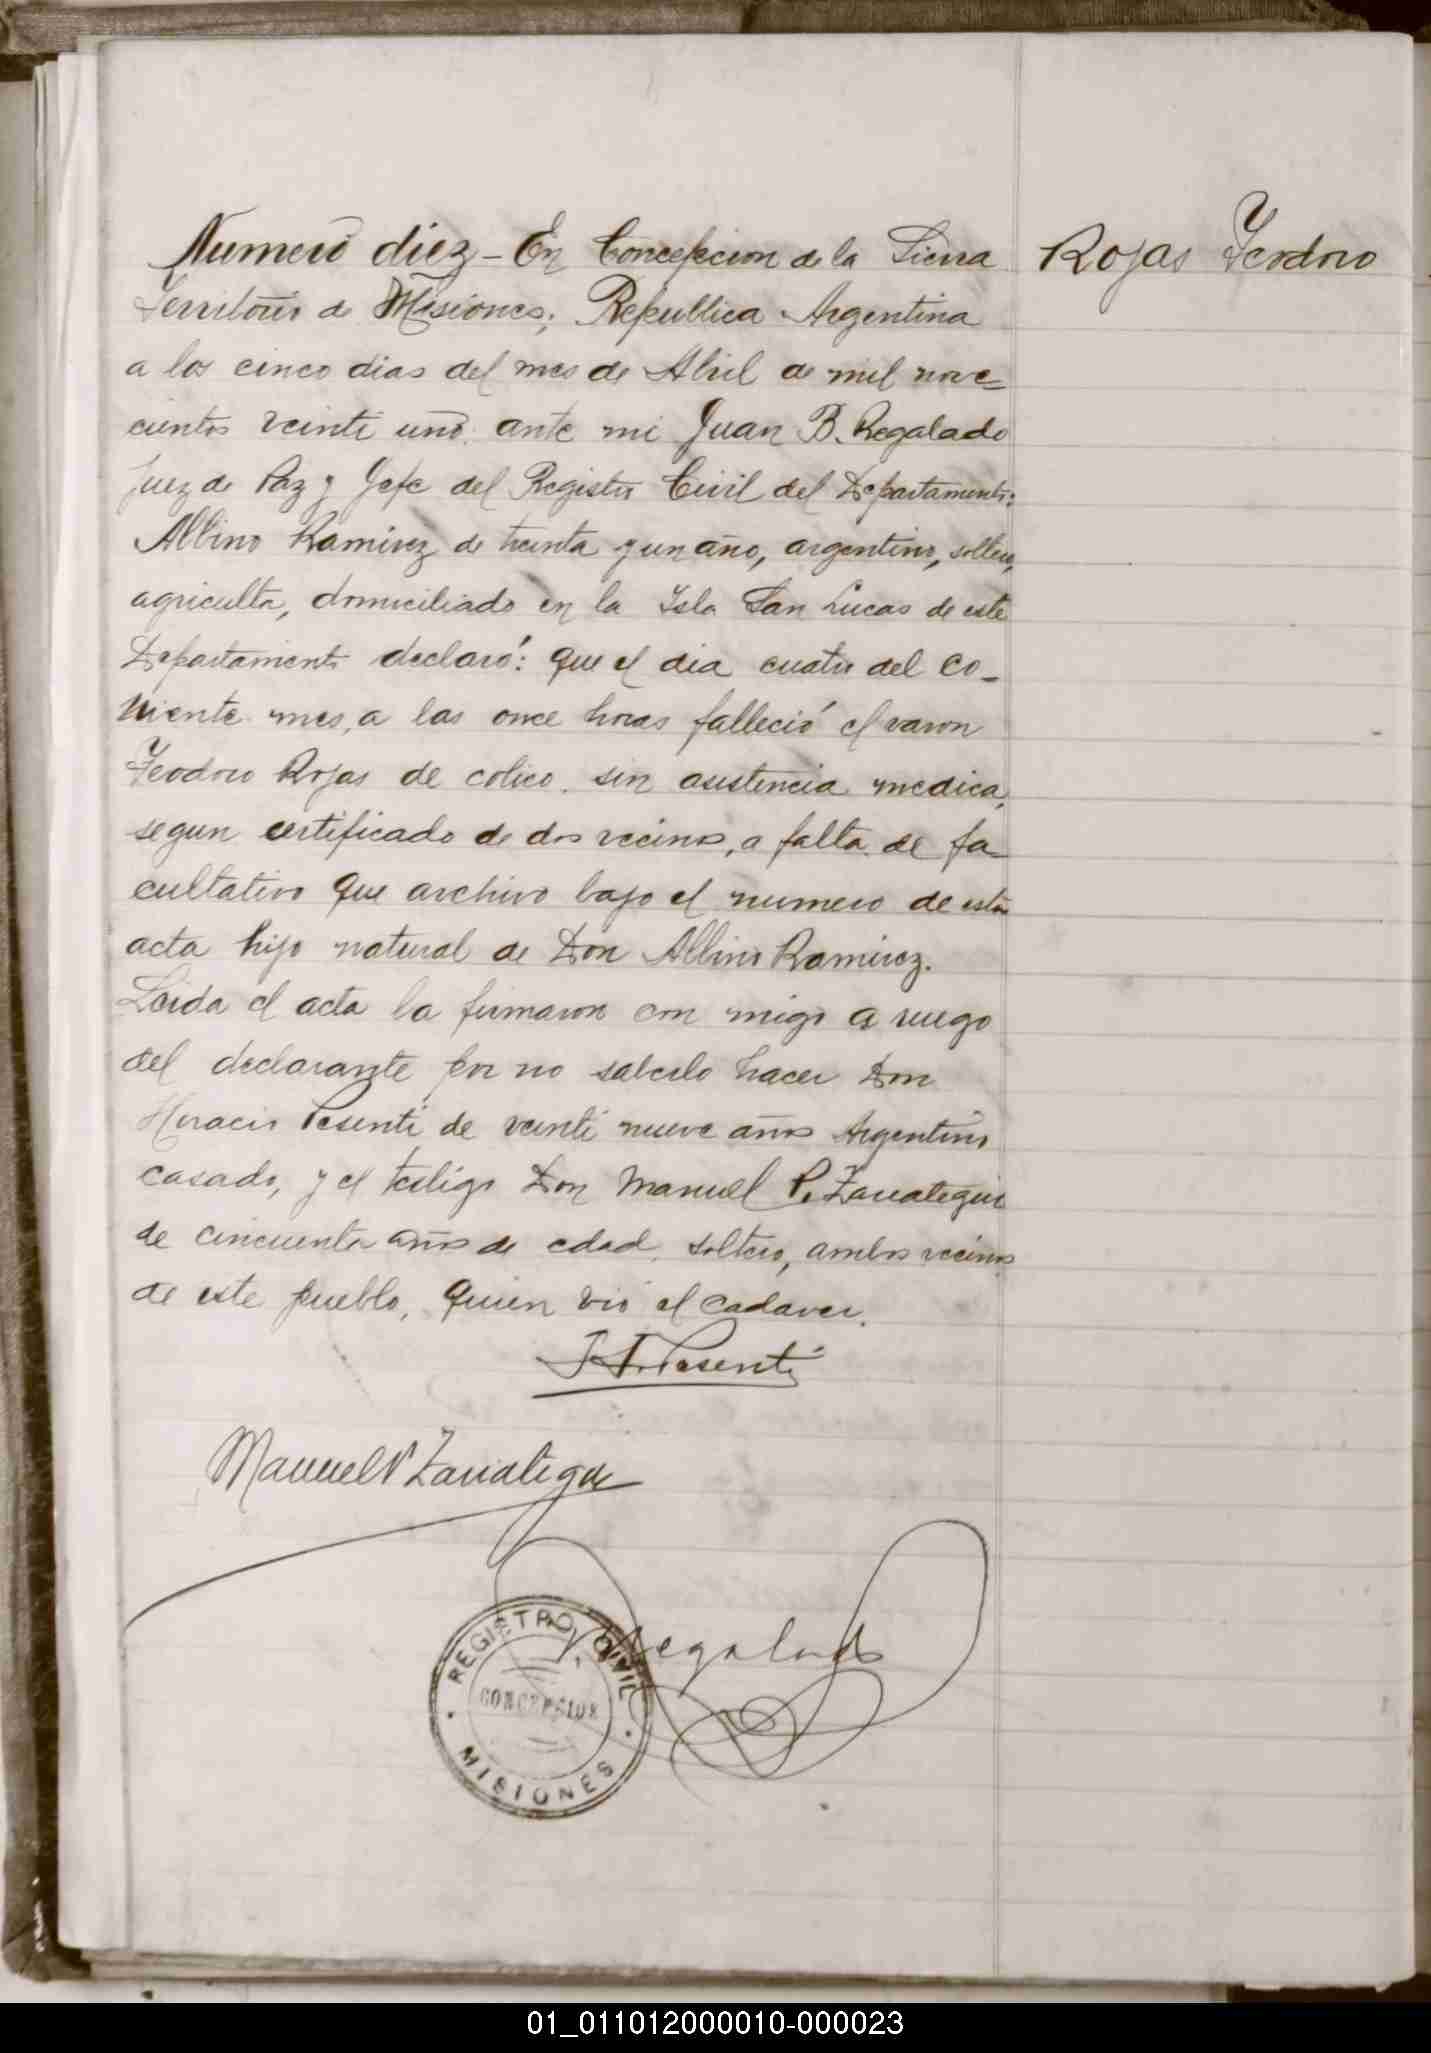 Numero diez - En Concepcion de la Sierra
Rojas Teodoro
Territorio de Misiones; Republica Argentina
a los cinco dias del mes de Abril de mil nove=
cientos veinti uno. ante mi Juan B. Regalado
Juez de Paz y Jefe del Registro Civil del Departamento:
Albino Ramirez de treinta y un año, argentino, soltero,
agriculta, domiciliado en la Isla San Lucas de este
Departamento declaró: que el dia cuatro del co-
rriente mes, a las once horas falleció el varon
Teodoro Rojas de colico. sin asistencia medica,
segun certificado de dos vecinos, a falta de fa
cultativo que archivo bajo el numero de esta
acta hijo natural de Don Albino Ramirez.
Leida el acta la firmaron con migo a ruego
del declarante por no saberlo hacer Don
Horacio Pesenti de veinti nueve años Argentino
casado, y el testigo Don Manuel P. Zarrategui
de cincuenta años de edad. soltero, ambos vecinos
de este pueblo, quien vió el cadaver.
H. Pesenti
Manuel P Zarrategui
Regalado
REGISTRO CIVIL
CONCEPCION
MISIONES
01_011012000010-000023